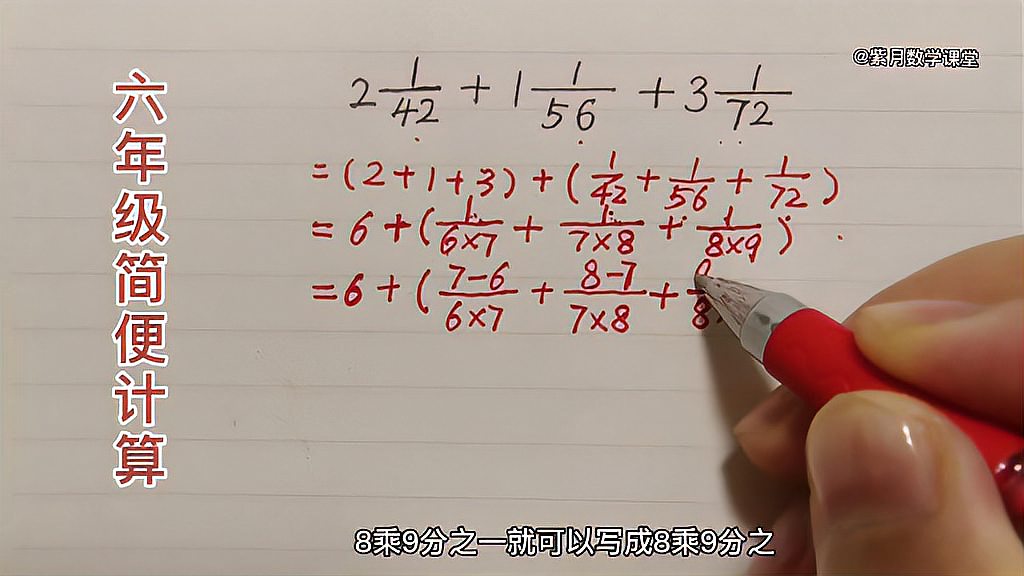 @紫月数学课堂
六年级简便计算
2 1/42 + 1 1/56 + 3 1/72
=(2+1+3)+(1/42+1/56+1/72)
=6+(1/6×7+1/7×8+1/8×9)
=6+(7-6/6×7+8-7/7×8+
8乘9分之一就可以写成8乘9分之